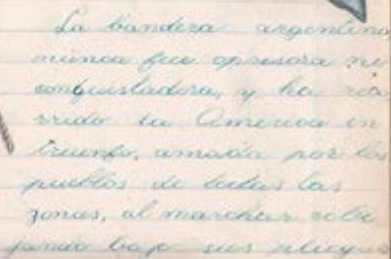 La bandera argentina
nunca fue opresora ni
conquistadora, y ha co
rrido la America en
triunfo, amada por los
pueblos de todas las
zonas, al marchar cobi
jando bajo sus pliegues